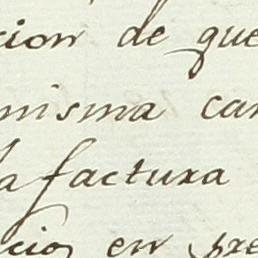 cion de que
misma can
la factura
cio en pre